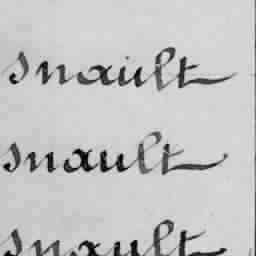 snault
snault
snault